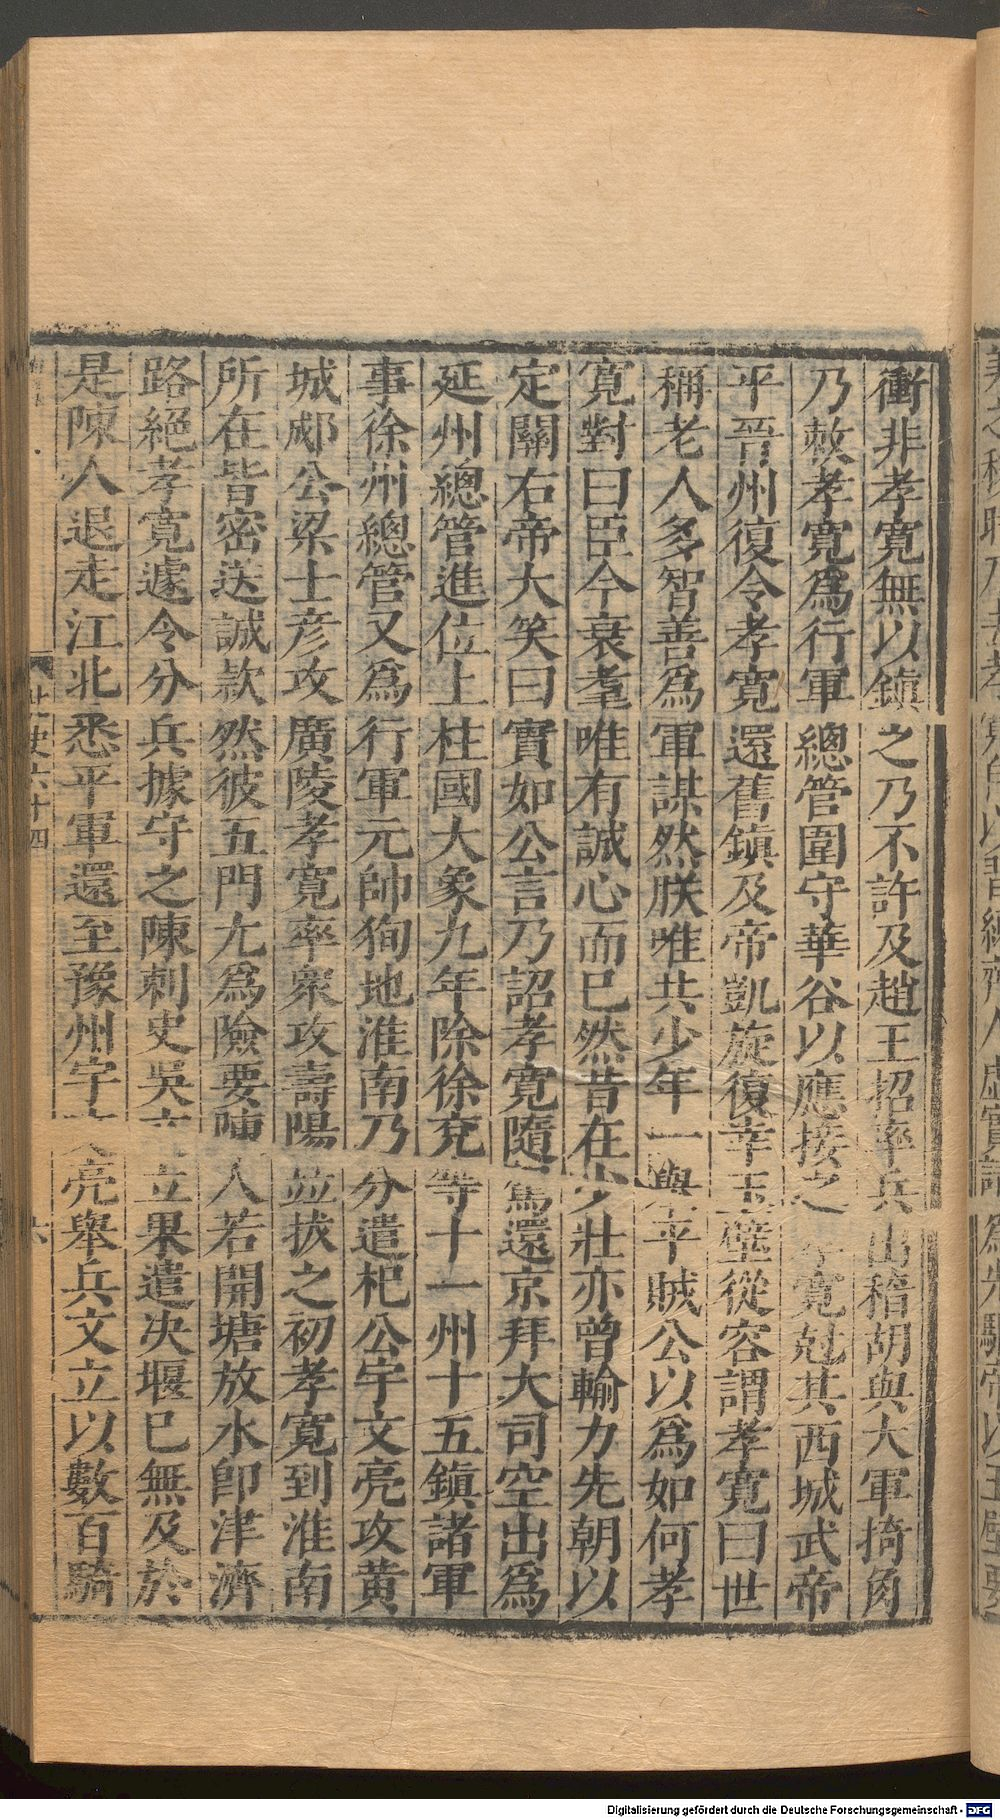 衝非孝寬無以鎮之乃不許及趙王招率兵出稽胡與大軍掎角
乃敕孝寬爲行軍總管圍守華谷以應接之孝寬尅其西城武帝
平晉州復令孝寬還舊鎮及帝凱旋復幸玉壁從容謂孝寬曰世
稱老人多智善爲軍謀然朕唯共少年一舉平賊公以爲如何孝
寬對曰臣今衰耄唯有誠心而已然昔在少壯亦曾輸力先朝以
定關右帝大笑曰實如公言乃詔孝寬隨駕還京拜大司空出爲
延州總管進位上柱國大象九年除徐兗等十一州十五鎮諸軍
事徐州總管又爲行軍元帥狥地淮南乃分遣杞公宇文亮攻黃
城郕公梁士彥攻廣陵孝寬率衆攻壽陽並拔之初孝寬到淮南
所在皆密送誠款然彼五門尤爲險要陳人若開塘放水卽津濟
路絕孝寬遽令分兵據守之陳刺史吳文立果遣决堰巳無及於
是陳人退走江北悉平軍還至豫州宇文亮舉兵文立以數百騎
北史六十四
六
Digitalisierung gefördert durch die Deutsche Forschungsgemeinschaft - DFG